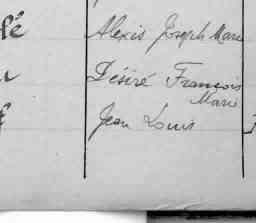 lé Alexis Joseph Marie
Désiré François
Marie
Jean Louis